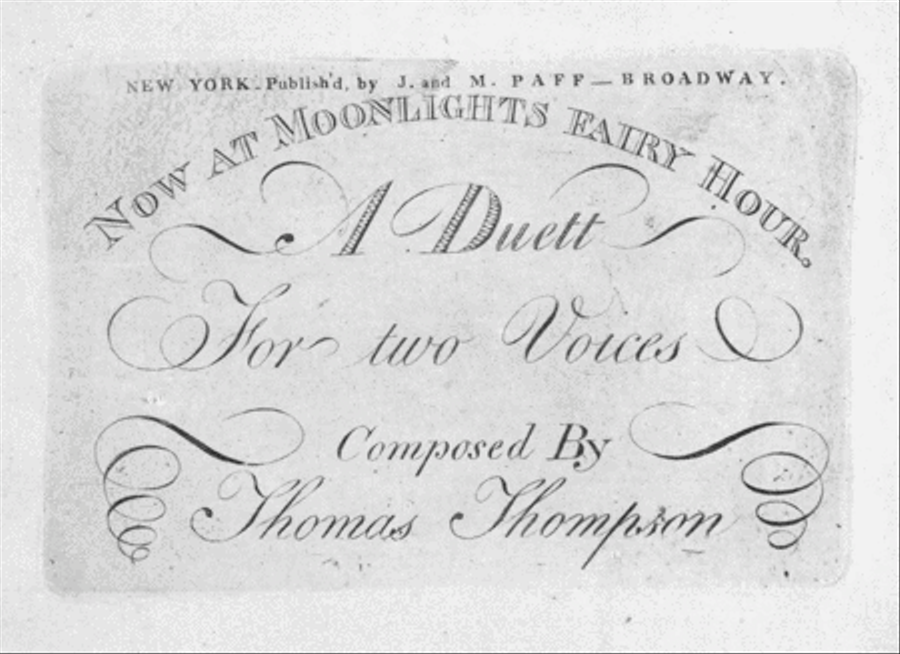 NEW YORK. Publish'd, by J. and M. PAFF — BROADWAY.
NOW AT MOONLIGHTS FAIRY HOUR.
A Duett
For two Voices
Composed By
Thomas Thompson